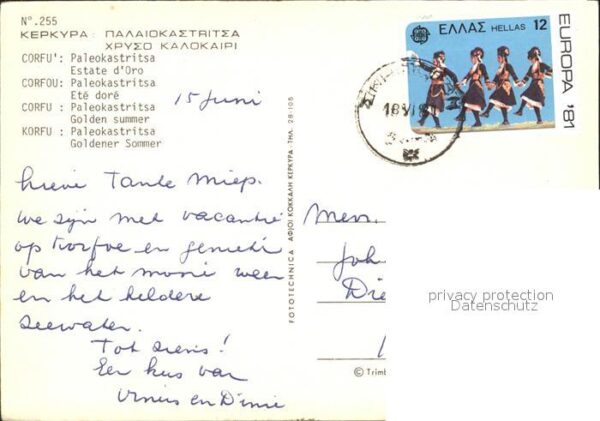 Nº.255
ΚΕΡΚΥΡΑ: ΠΑΛΑΙΟΚΑΣΤΡΙΤΣΑ
ΧΡΥΣΟ ΚΑΛΟΚΑΙΡΙ
CORFU': Paleokastritsa
Estate d'Oro
CORFOU: Paleokastritsa
Eté doré
CORFU : Paleokastritsa
Golden summer
KORFU : Paleokastritsa
Goldener Sommer
15 Juni
Lieve Tante Miep.
We zijn met vacantie
op Korfoe en genieten
van het mooie weer
en het heldere
zeewater.
Tot ziens!
Een kus van
en Dinie
FOTOTECHNICA ΑΦΙΟΙ ΚΟΚΚΑΛΗ ΚΕΡΚΥΡΑ - ΤΗΛ. 28-105
ΕΛΛΑΣ HELLAS 12
EUROPA '81
18 VI 81
Men.
Joh
Die
privacy protection
Datenschutz
© Trimb